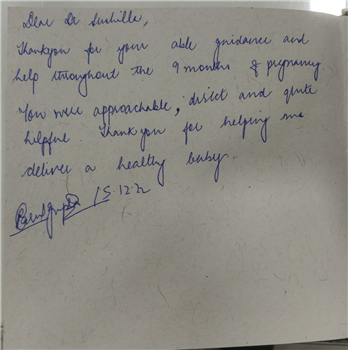 Dear Dr Sushilla,
Thankyou for your able guidance and
help throughout the 9 months of pregnancy
You were approachable, direct and quite
helpful. Thank you for helping me
deliver a healthy baby.
Gupta 15.12.22